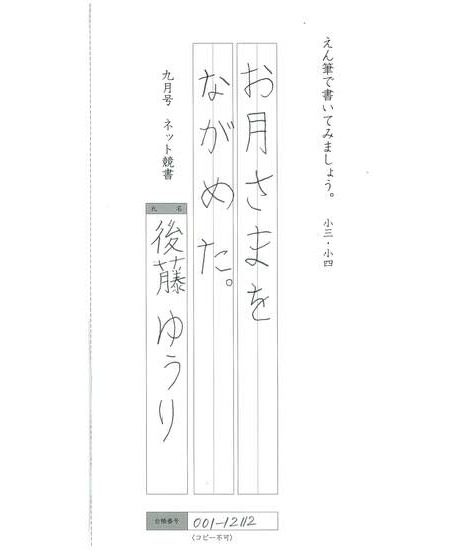 えん筆で書いてみましょう。 小三・小四
お月さまを
ながめた。
九月号 ネット競書
氏名
後藤ゆうり
台帳番号 001-12112
(コピー不可)